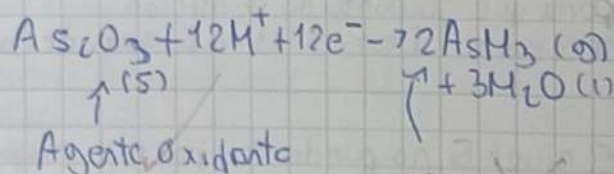 As₂O₃+12H⁺+12e⁻→2AsH₃ (g)
(s) + 3H₂O (l)
Agente oxidante